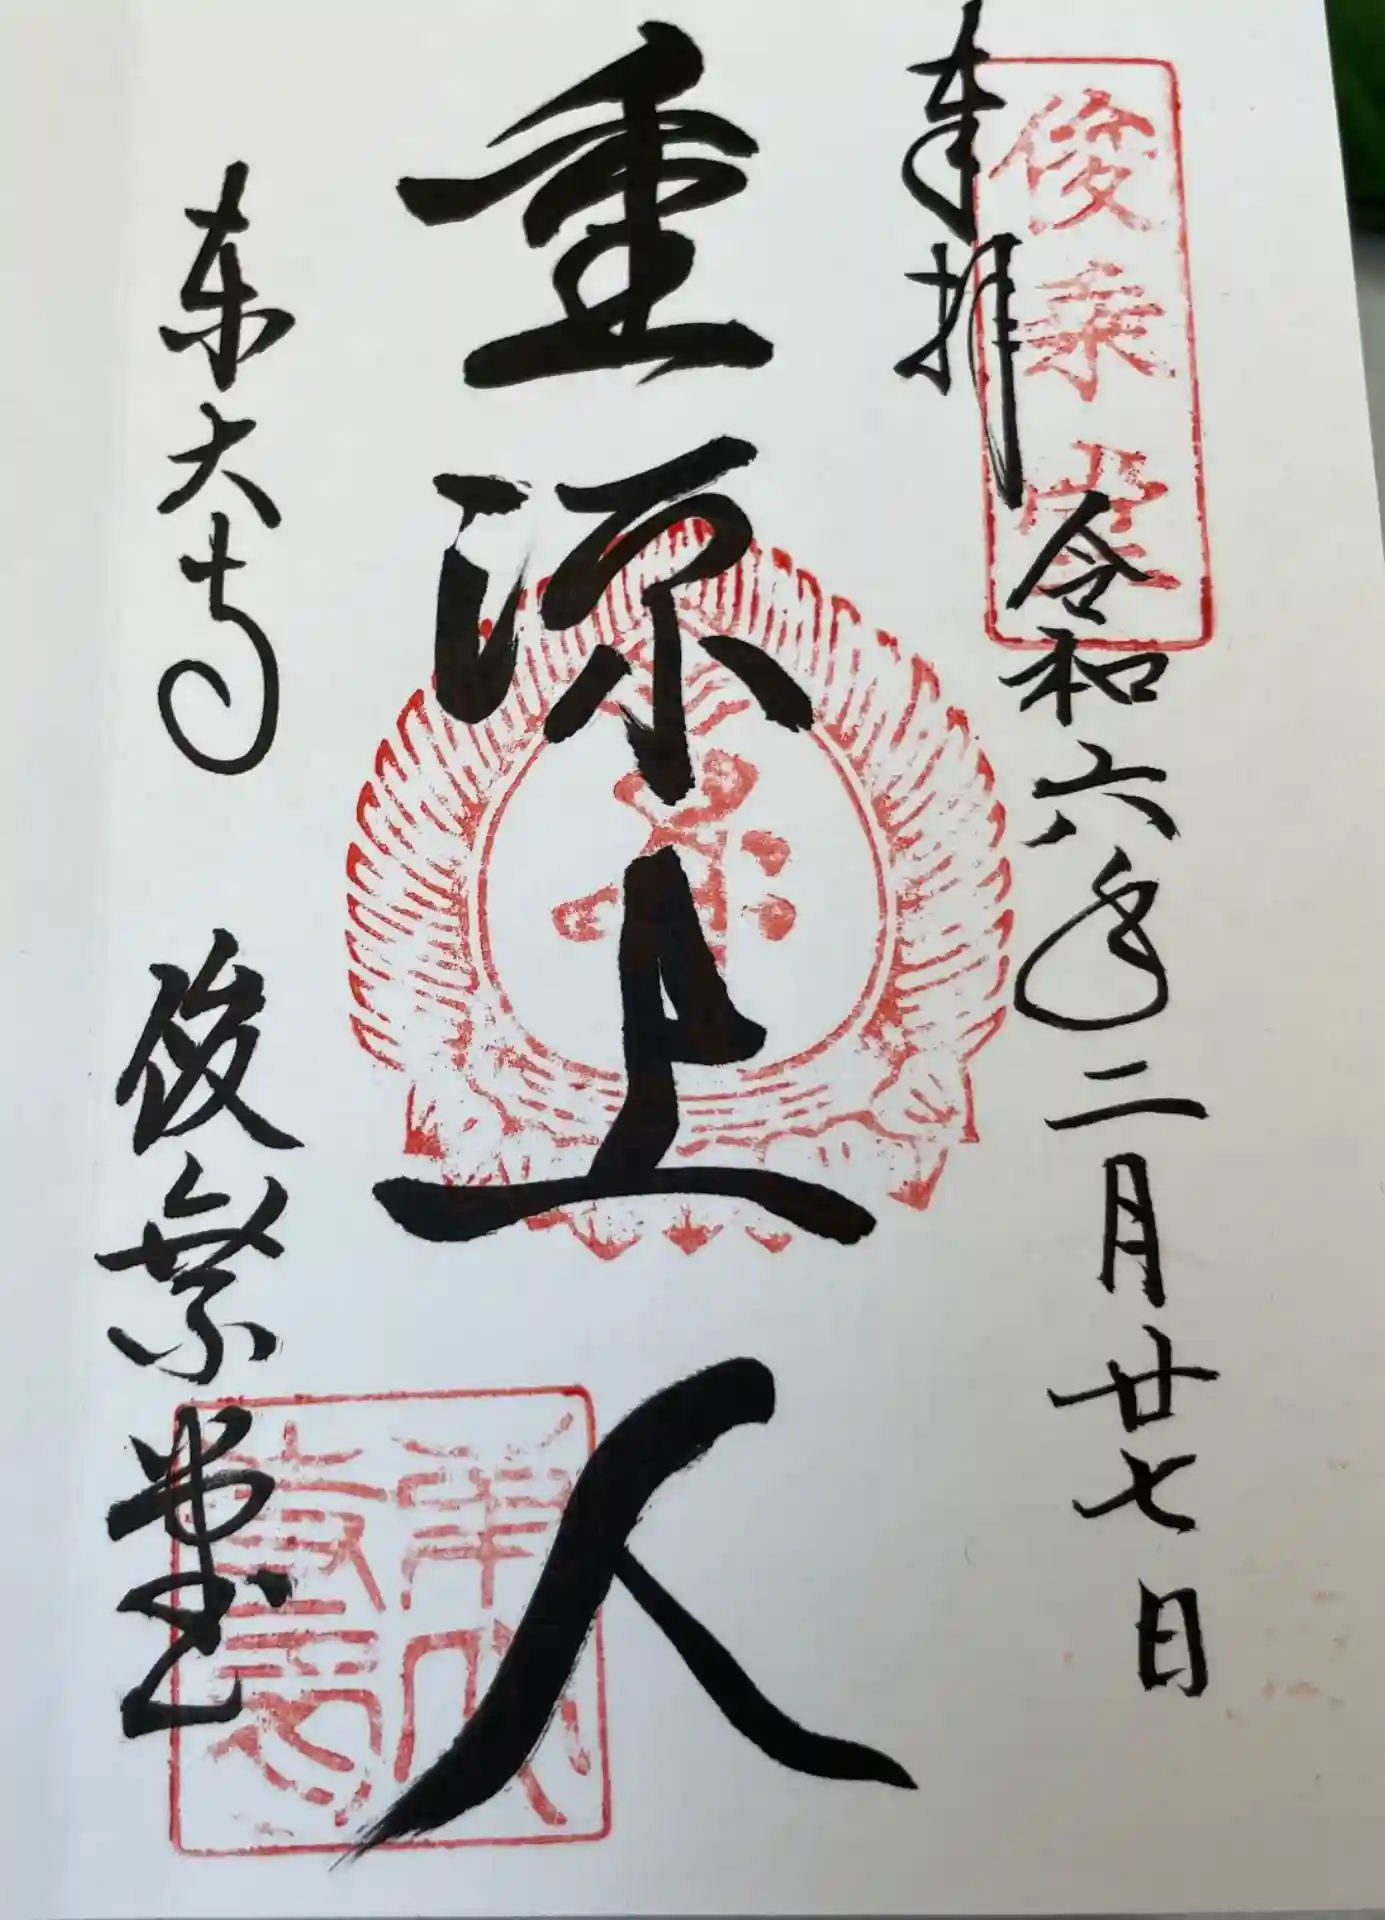 俊乗堂
奉拝
令和六年二月廿七日
重源上人
東大寺
俊乗堂